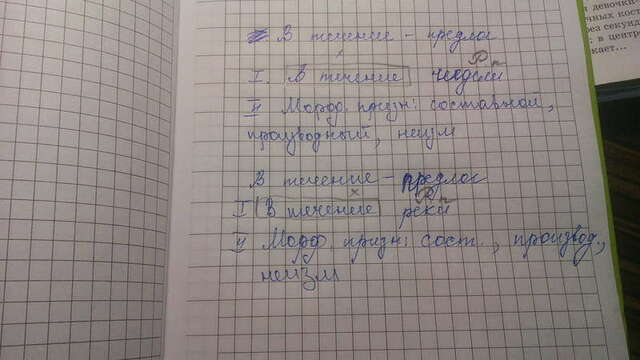 В течение - предлог
Р.п
I. В течение недели
х
II Морф. призн: составной,
производный, неизм
В течение - предлог
Р.п
х
I В течение реки
II Морф призн: сост., производ.,
неизм
девочки
чных кост
рез секунд
; в центр
кает...